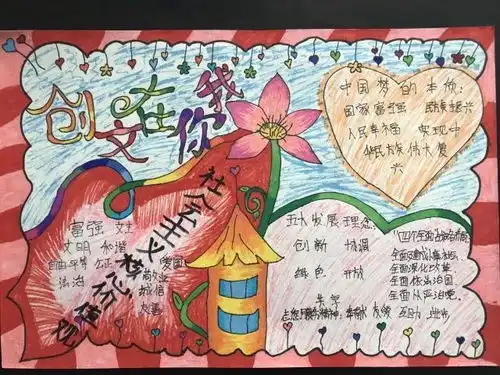 创文在你我
中国梦的本质:
国家富强 民族振兴
人民幸福 实现中
华民族伟大复
兴
社会主义核心价值观
富强 民主
文明 和谐
自由平等 公正
法治
爱国
敬业
诚信
友善
五大发展理念:
创新 协调
绿色 开放
共享
"四个全面"战略布局
全面建成小康社会
全面深化改革
全面依法治国
全面从严治党
志愿服务精神: 奉献 友爱 互助 进步